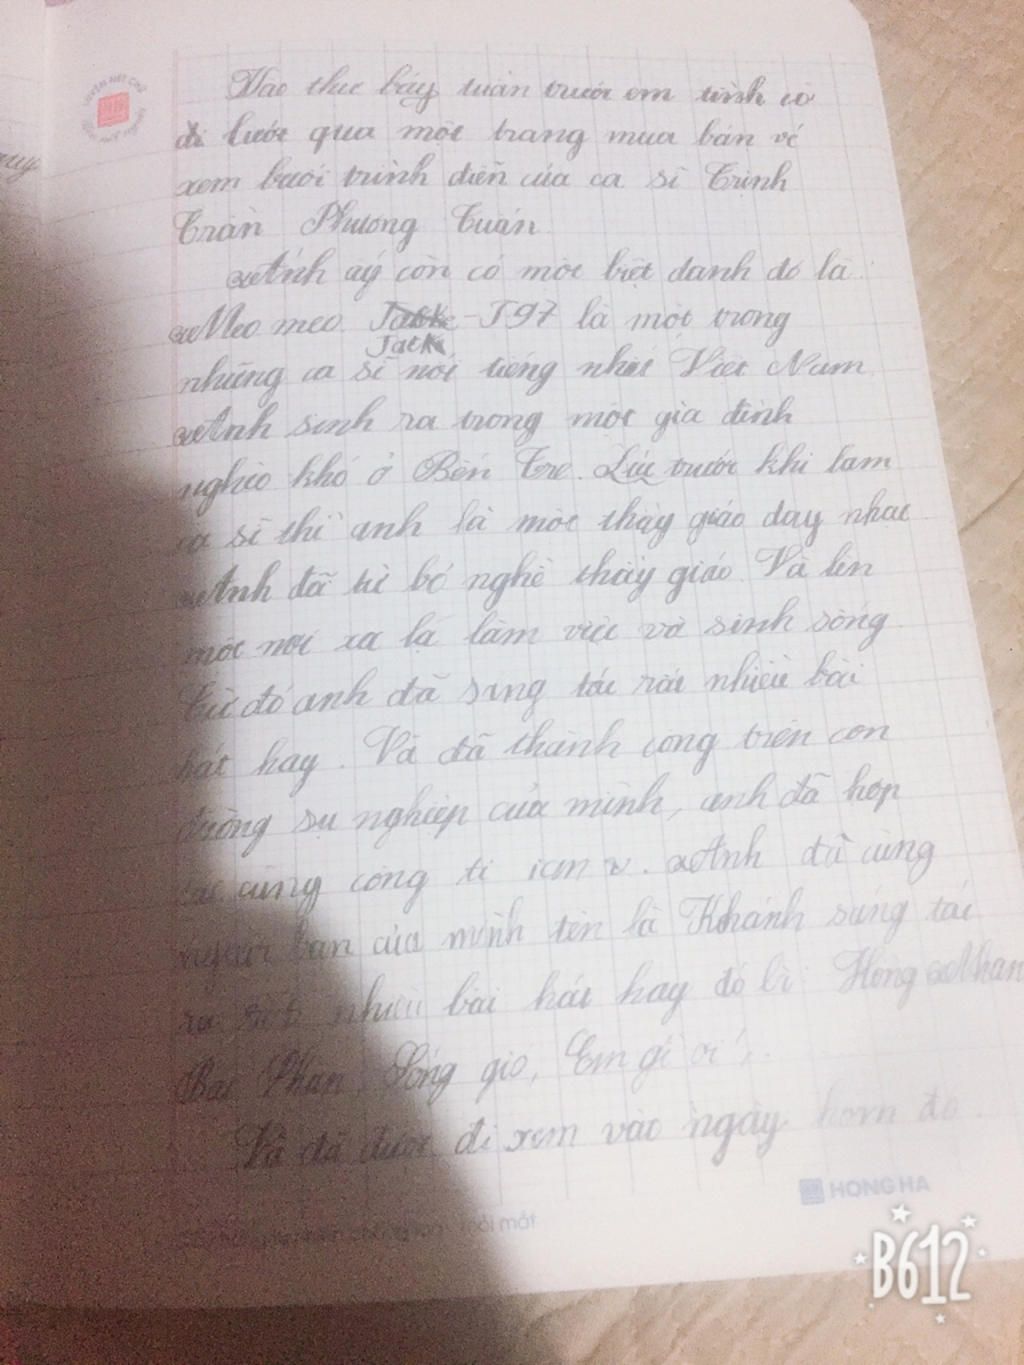 Vào thứ bảy tuần trước em tình cờ
đi lướt qua một trang mua bán vé
xem buổi trình diễn của ca sĩ Trịnh
Trần Phương Tuấn.
Anh ấy còn có một biệt danh đó là:
Meo meo. Jack-J97 là một trong
những ca sĩ nổi tiếng nhất Việt Nam.
Anh sinh ra trong một gia đình
nghèo khó ở Bến Tre. Lúc trước khi làm
ca sĩ thì anh là một thầy giáo dạy nhạc
Anh đã từ bỏ nghề thầy giáo. Và lên
một nơi xa lạ làm việc và sinh sống.
Từ đó anh đã sáng tác rất nhiều bài
hát hay. Và đã thành công trên con
đường sự nghiệp của mình, anh đã hợp
tác cùng công ti icm v. Anh đã cùng
người bạn của mình tên là Khánh sáng tác
ra nhiều bài hát hay đó là: Hồng Nhan
Bạc Phận, Sóng gió, Em gì ơi,..
Và đã được đi xem vào ngày hôm đó.
HONG HA
mỏi mắt
LUYỆN NÉT CHỮ
B612